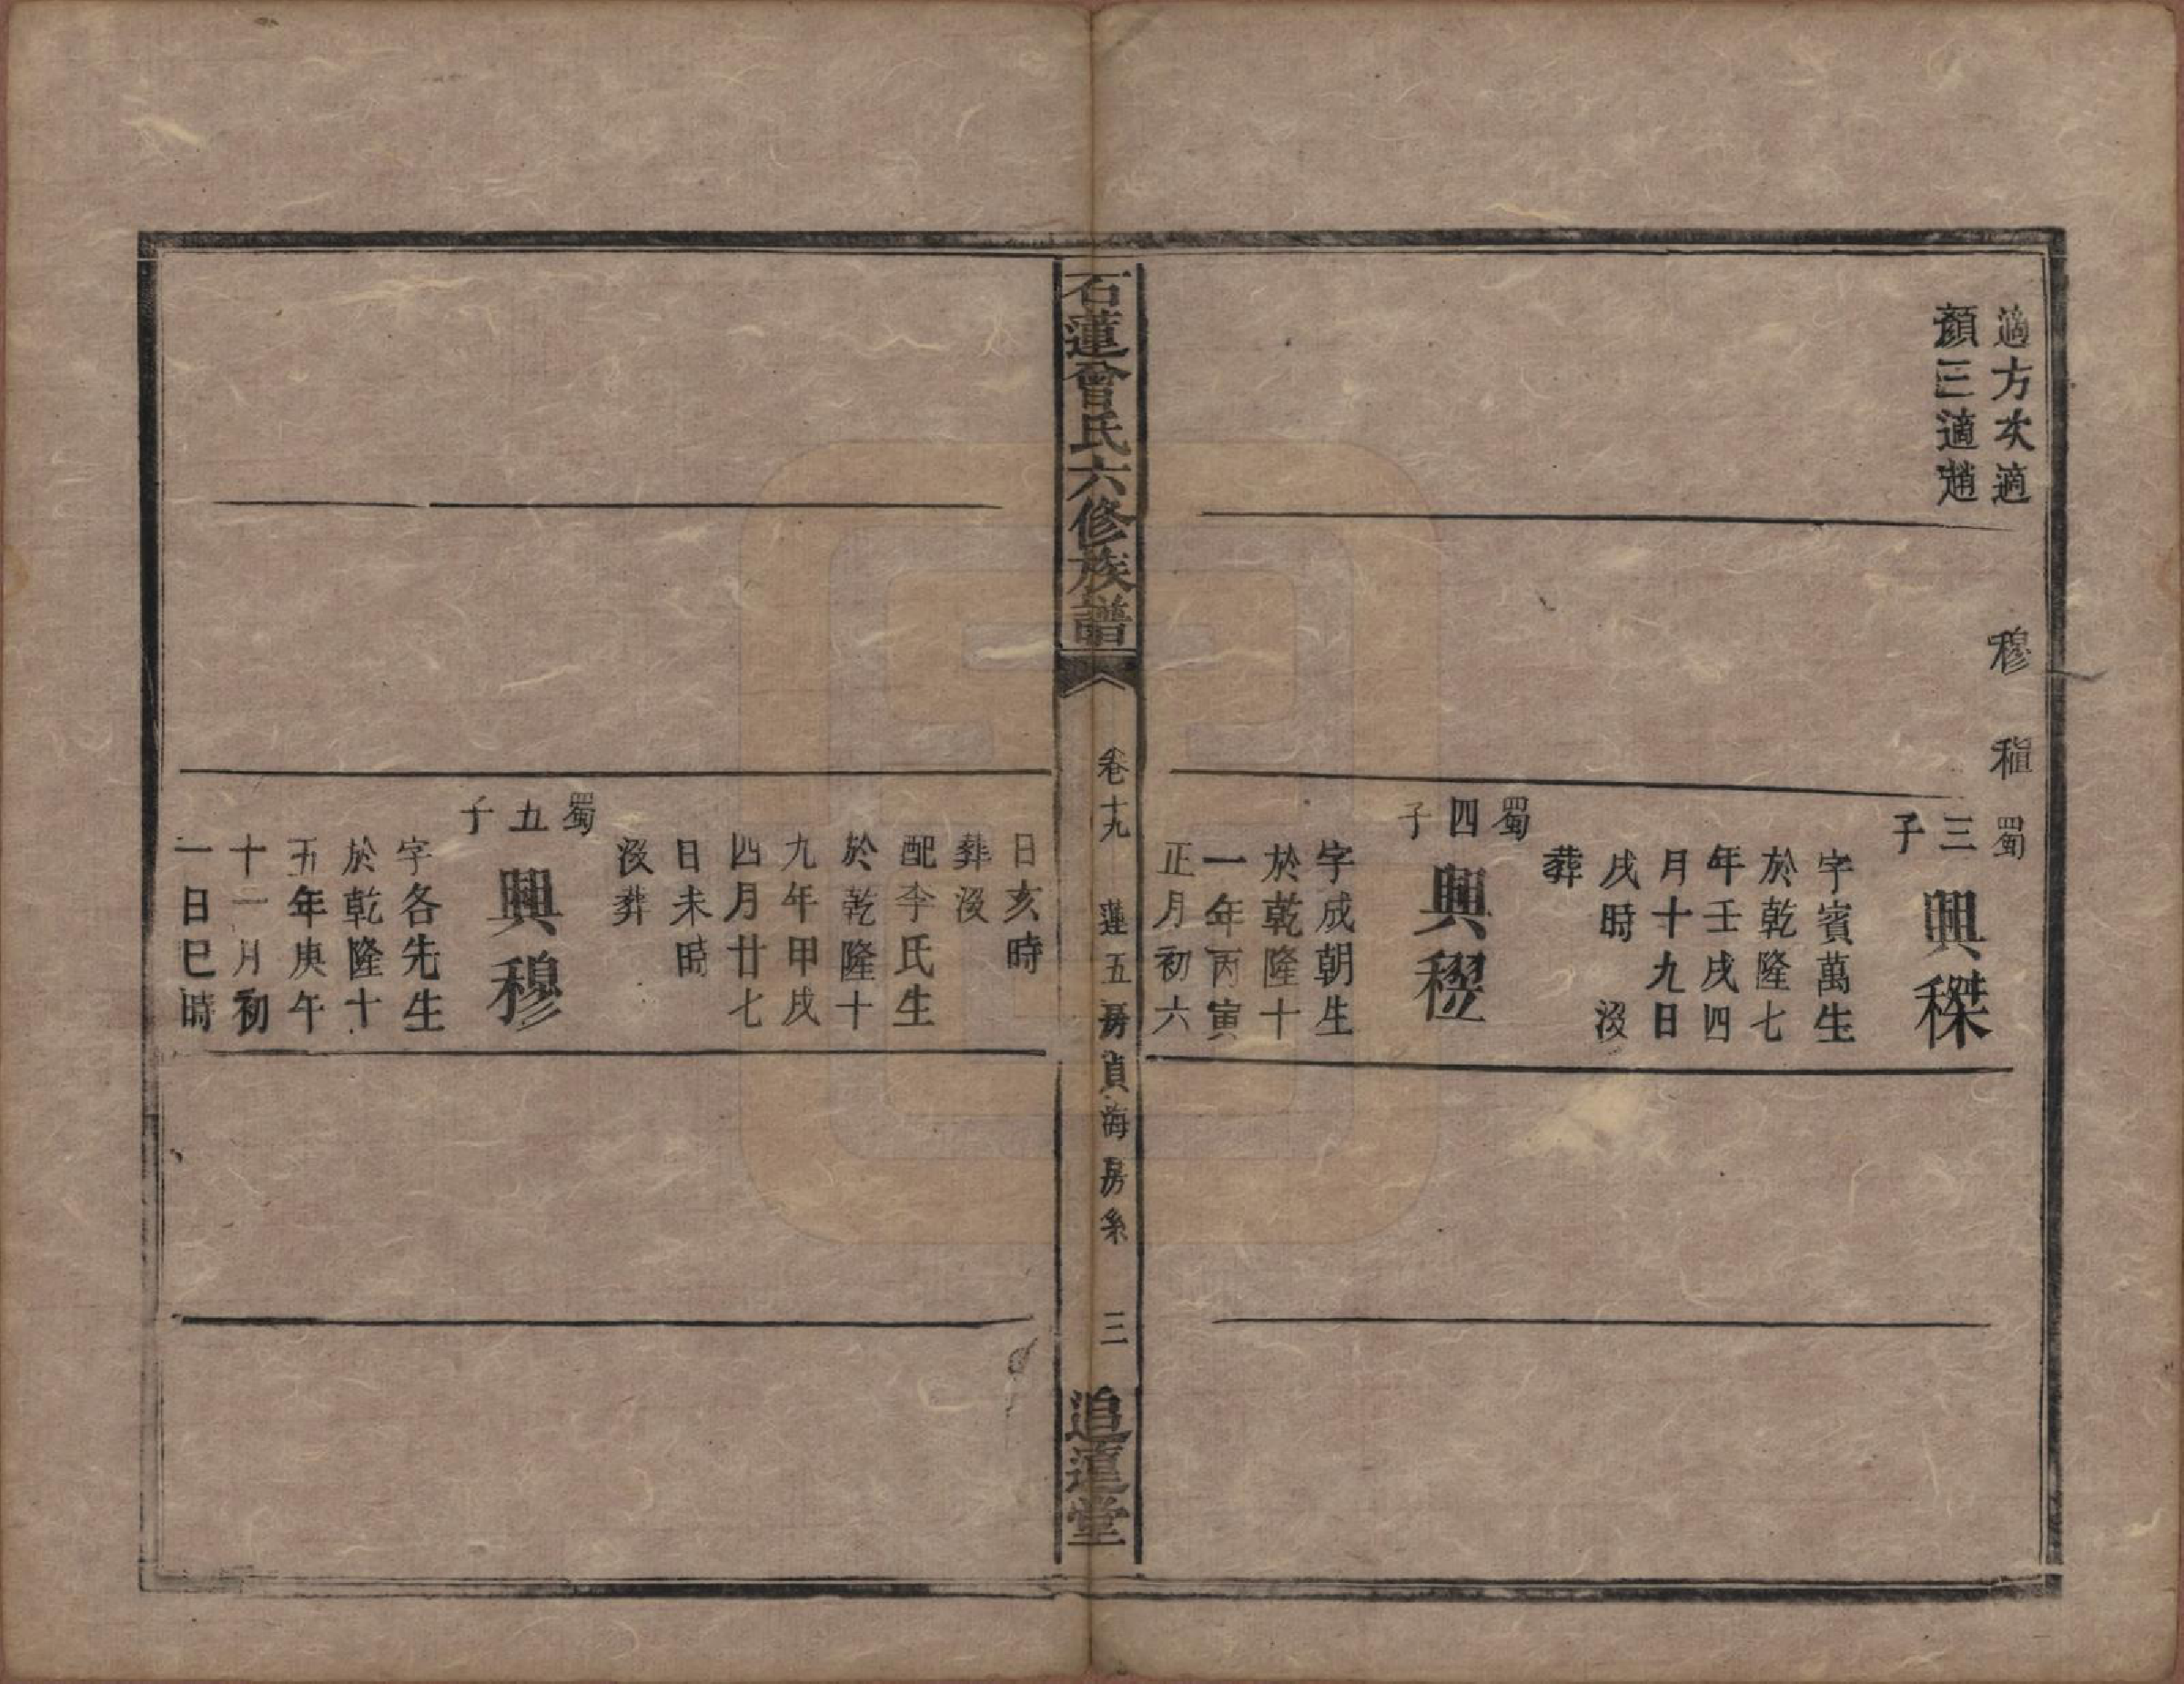 適方次適
顏三適趙
穆 稙
蜀三子
興榤
字賓萬生
於乾隆七
年壬戌四
月十九日
戌時 没
葬
蜀四子
興稷
字成朝生
於乾隆十
一年丙寅
正月初六
石蓮曾氏六修族譜
卷十九 蓮五房貞海房系 三
追蓮堂
日亥時
葬没
配李氏生
於乾隆十
九年甲戌
四月廿七
日未時
没葬
蜀五子
興穆
字各先生
於乾隆十
五年庚午
十一月初
一日巳時